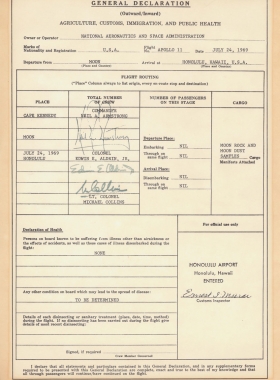 GENERAL DECLARATION
(Outward/Inward)
AGRICULTURE, CUSTOMS, IMMIGRATION, AND PUBLIC HEALTH
Owner or Operator NATIONAL AERONAUTICS AND SPACE ADMINISTRATION
Marks of Nationality and Registration U.S.A. Flight No. APOLLO 11 Date JULY 24, 1969
Departure from MOON Arrival at HONOLULU, HAWAII, U.S.A.
(Place and Country) (Place and Country)
FLIGHT ROUTING
("Place" Column always to list origin, every en-route stop and destination)
PLACE
TOTAL NUMBER OF CREW
NUMBER OF PASSENGERS ON THIS STAGE
CARGO
CAPE KENNEDY
COMMANDER
NEIL A. ARMSTRONG
MOON
JULY 24, 1969
HONOLULU
COLONEL
EDWIN E. ALDRIN, JR.
LT. COLONEL
MICHAEL COLLINS
Departure Place:
Embarking NIL
Through on same flight NIL
Arrival Place:
Disembarking NIL
Through on same flight NIL
MOON ROCK AND
MOON DUST
SAMPLES Cargo
Manifests Attached
Declaration of Health
Persons on board known to be suffering from illness other than airsickness or the effects of accidents, as well as those cases of illness disembarked during the flight:
NONE
Any other condition on board which may lead to the spread of disease:
TO BE DETERMINED
Details of each disinsecting or sanitary treatment (place, date, time, method) during the flight. If no disinsecting has been carried out during the flight give details of most recent disinsecting:
Signed, if required
Crew Member Concerned
For official use only
HONOLULU AIRPORT
Honolulu, Hawaii
ENTERED
Customs Inspector
I declare that all statements and particulars contained in this General Declaration, and in any supplementary forms required to be presented with this General Declaration are complete, exact and true to the best of my knowledge and that all through passengers will continue/have continued on the flight.